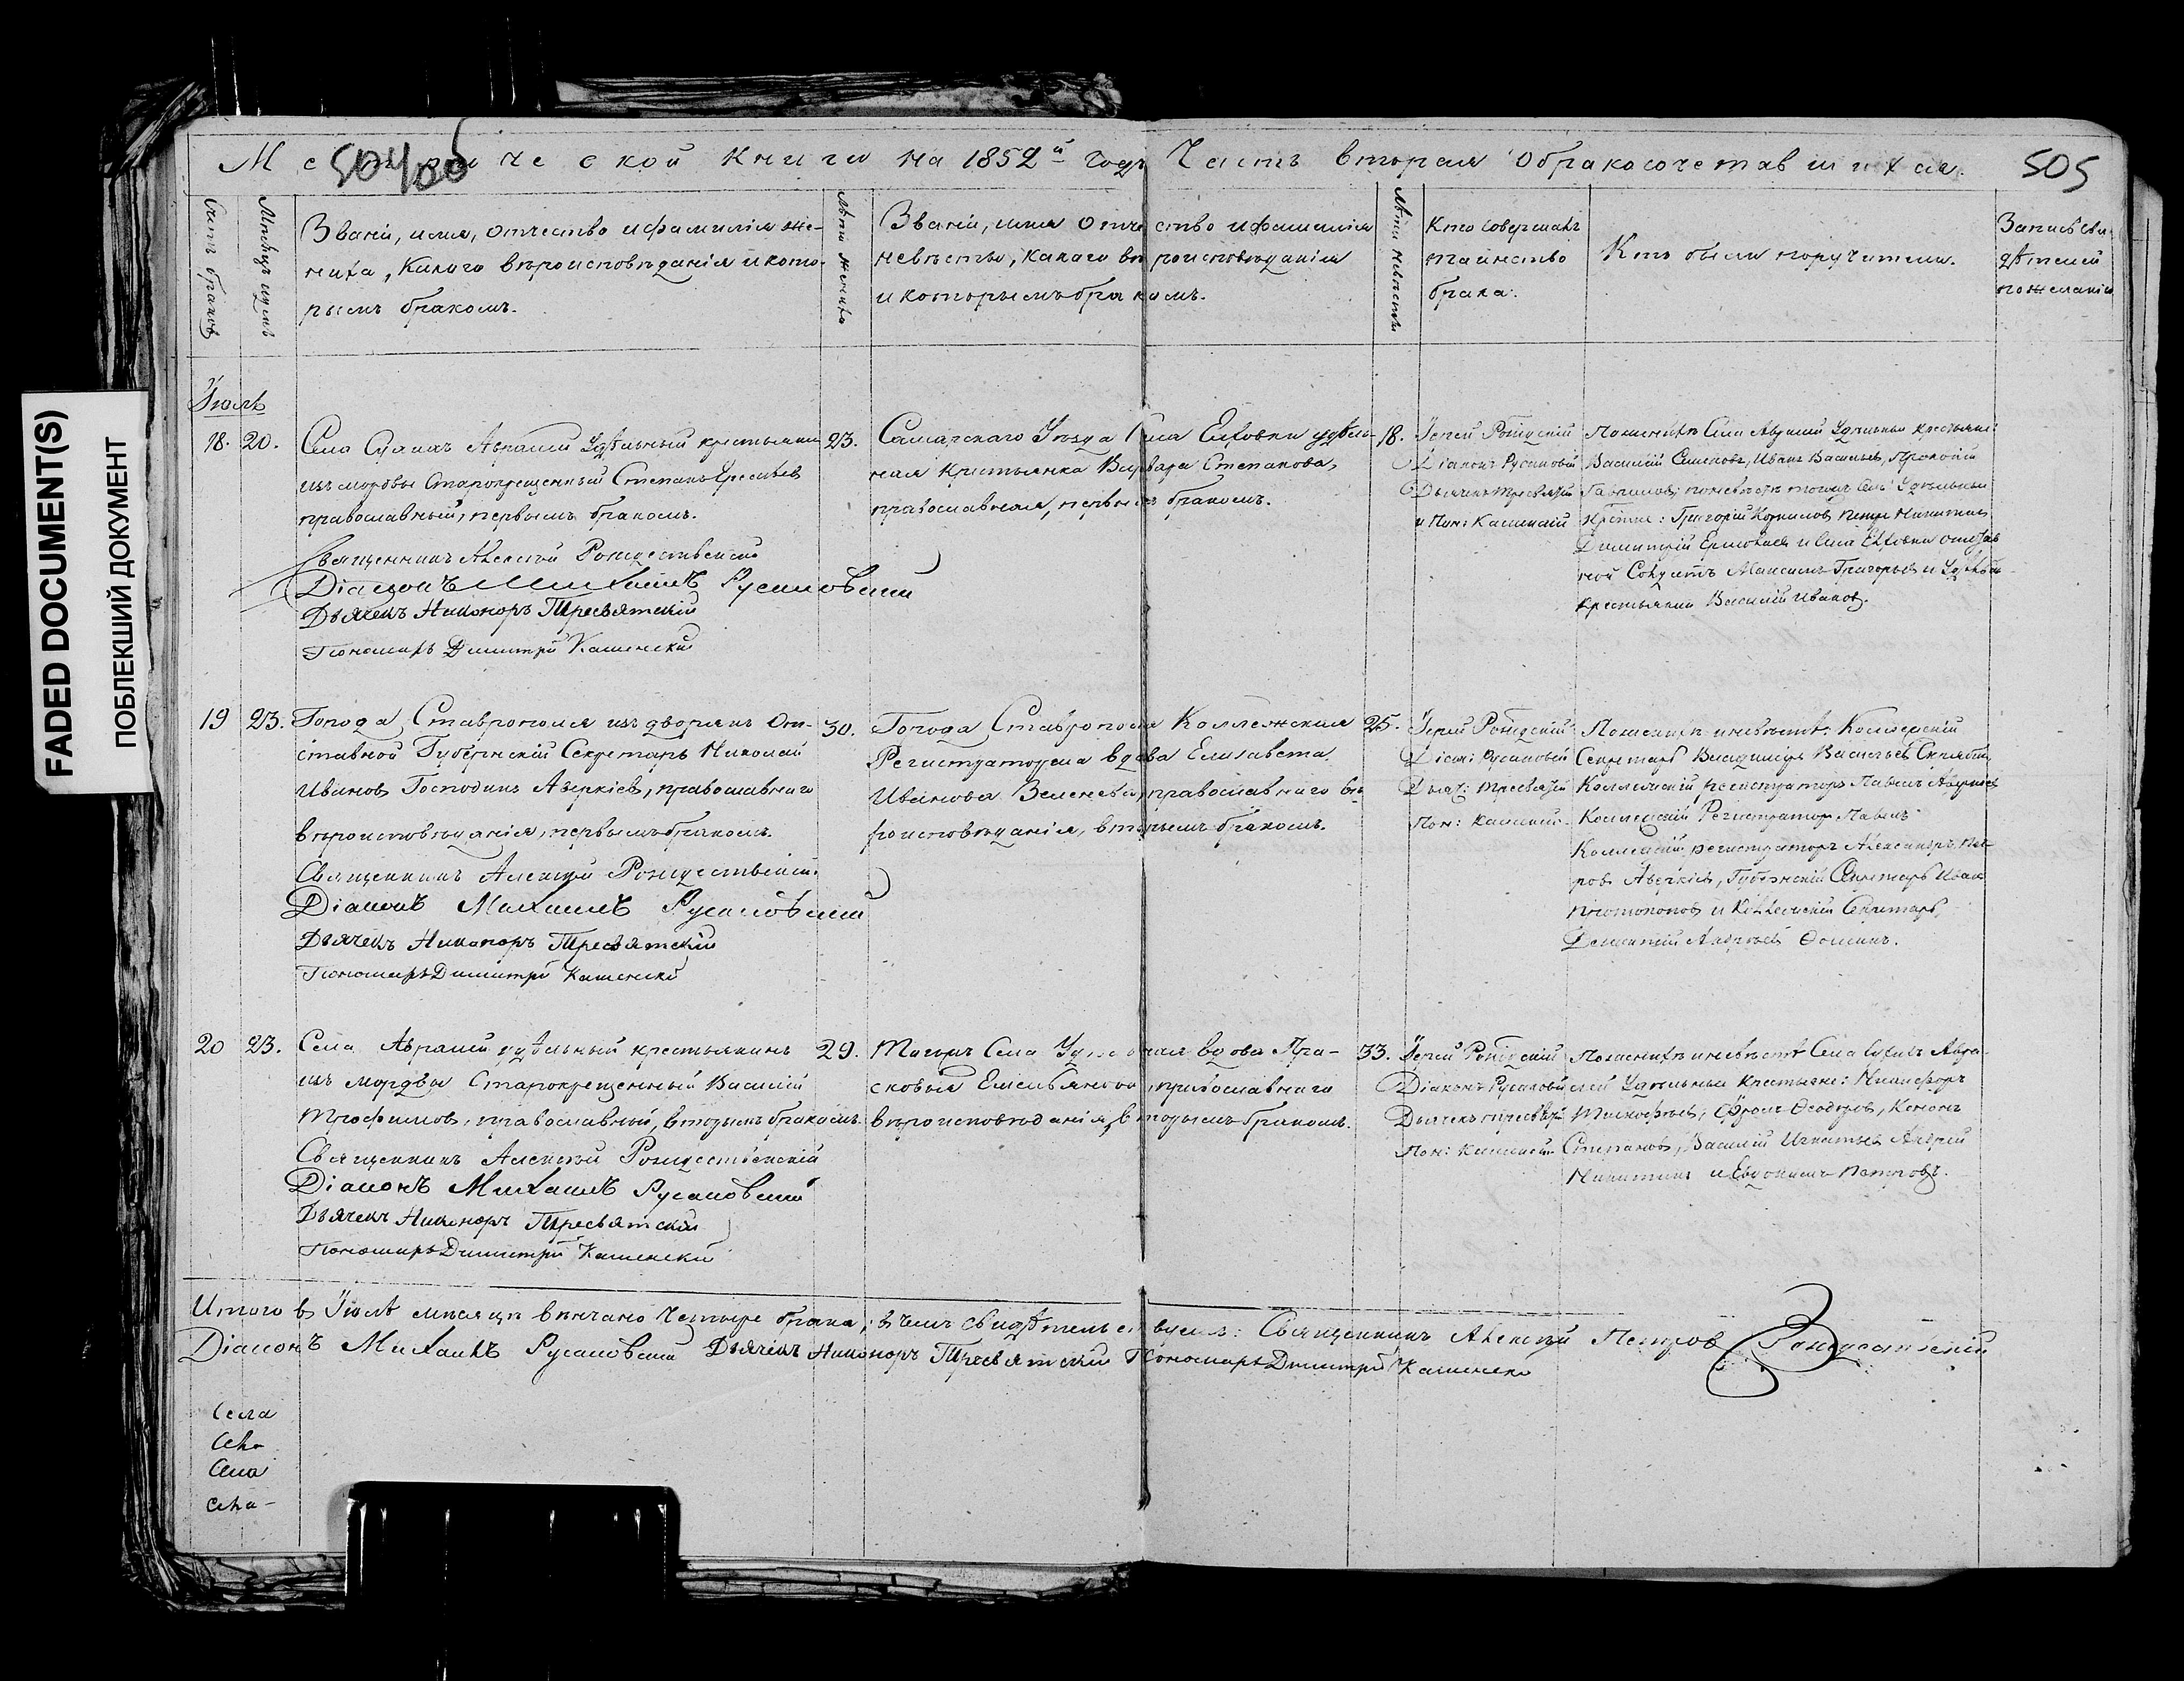 FADED DOCUMENT(S)
ПОБЛЕКШИЙ ДОКУМЕНТ
504 об
505
Метрической книги на 1852й годъ Часть вторая о бракосочетавшихся.
Счетъ браковъ
Мѣсяцъ и день
Званіе, имя, отчество и фамилія же-
ниха, какого вѣроисповѣданія и кото-
рымъ бракомъ.
Лѣта жениха
Званіе, имя отчество и фамилія
невѣсты, какого вѣроисповѣданія
и которымъ бракомъ.
Лѣта невѣсты
Кто совершалъ
таинство
брака.
Кто были поручители.
Запись сви-
дѣтелей
по желанію
Іюль
18. 20.
Села Авралей Удѣльный крестьянинъ
изъ мордвы Старокрещенный Степанъ
православный, первымъ бракомъ.
Священникъ Алексѣй Рождественскій
Діаконъ Михаилъ Русановскій
Дьячекъ Никоноръ Тресвятскій
Пономарь Димитрій Каменскій
23.
Самарскаго Уѣзда Села Елховки удѣль-
ная крестьянка Варвара Степанова,
православная, первымъ бракомъ.
18.
Іерей Рождскій
Діаконъ Русановскій
Дьячекъ Тресвятскій
и Пон: Каменскій
По женихѣ Села Авралей Удѣльные крестьяне:
Василій Семеновъ, Иванъ Васильевъ, Прокопій
Гавриловъ; по невѣстѣ
Григорій Корниловъ Петръ Никитинъ
Димитрій Ермолаевъ и Села Елховки отстав-
ной Солдатъ Максимъ Григорьевъ и Удѣльный
крестьянинъ Василій Ивановъ.
19 23.
Города Ставрополя изъ дворянъ От-
ставной Губернскій Секретарь Николай
Ивановъ Господинъ Аверкіевъ, православнаго
вѣроисповѣданія, первымъ бракомъ.
Священникъ Алексѣй Рождественскій.
Діаконъ Михаилъ Русановскій
Дьячекъ Никоноръ Тресвятскій
Пономарь Димитрій Каменскій
30.
Города Ставрополя Коллежская
Регистраторша вдова Елисавета
Иванова Зеленева, православнаго вѣ-
роисповѣданія, вторымъ бракомъ.
25.
Іерей Рождскій
Діакон: Русановскій
Дьяч: Тресвятскій
Пон: Каменскій
По женихѣ и невѣстѣ: Коллежскій
Секретарь Владиміръ Васильевъ
Коллежскій регистраторъ Павелъ Аверкіевъ
Коллежскій Регистраторъ Павелъ
Коллежскій регистраторъ Александръ Пет-
ровъ Аверкіевъ, Губернскій Секретарь Иванъ
Протопоповъ и Коллежскій Секретарь
Дементій Андреевъ Фоминъ.
20 23.
Села Авралей удѣльный крестьянинъ
изъ мордвы Старокрещенный Василій
Трофимовъ, православный, вторымъ бракомъ.
Священникъ Алексѣй Рождественскій
Діаконъ Михаилъ Русановскій
Дьячекъ Никоноръ Тресвятскій
Пономарь Димитрій Каменскій
29.
Тогожъ Села Удѣльная вдова Пра-
сковья Емельянова, православнаго
вѣроисповѣданія, вторымъ бракомъ.
33.
Іерей Рождскій
Діаконъ Русановскій
Дьячекъ Тресвятскій
Пон: Каменскій
По женихѣ и невѣстѣ Села Авра-
лей Удѣльные крестьяне: Никифоръ
Тимофеевъ, Фролъ Ѳеодоровъ, Кононъ
Степановъ, Василій Игнатьевъ Андрей
Никитинъ и Евдокимъ Петровъ.
Итого въ Іюлѣ мѣсяцѣ вѣнчано Четыре брака; въ чемъ свидѣтельствуемъ: Священникъ Алексѣй Петровъ Рождественскій
Діаконъ Михаилъ Русановскій Дьячекъ Никоноръ Тресвятскій Пономарь Димитрій Каменскій
Села
Села
Села
Села